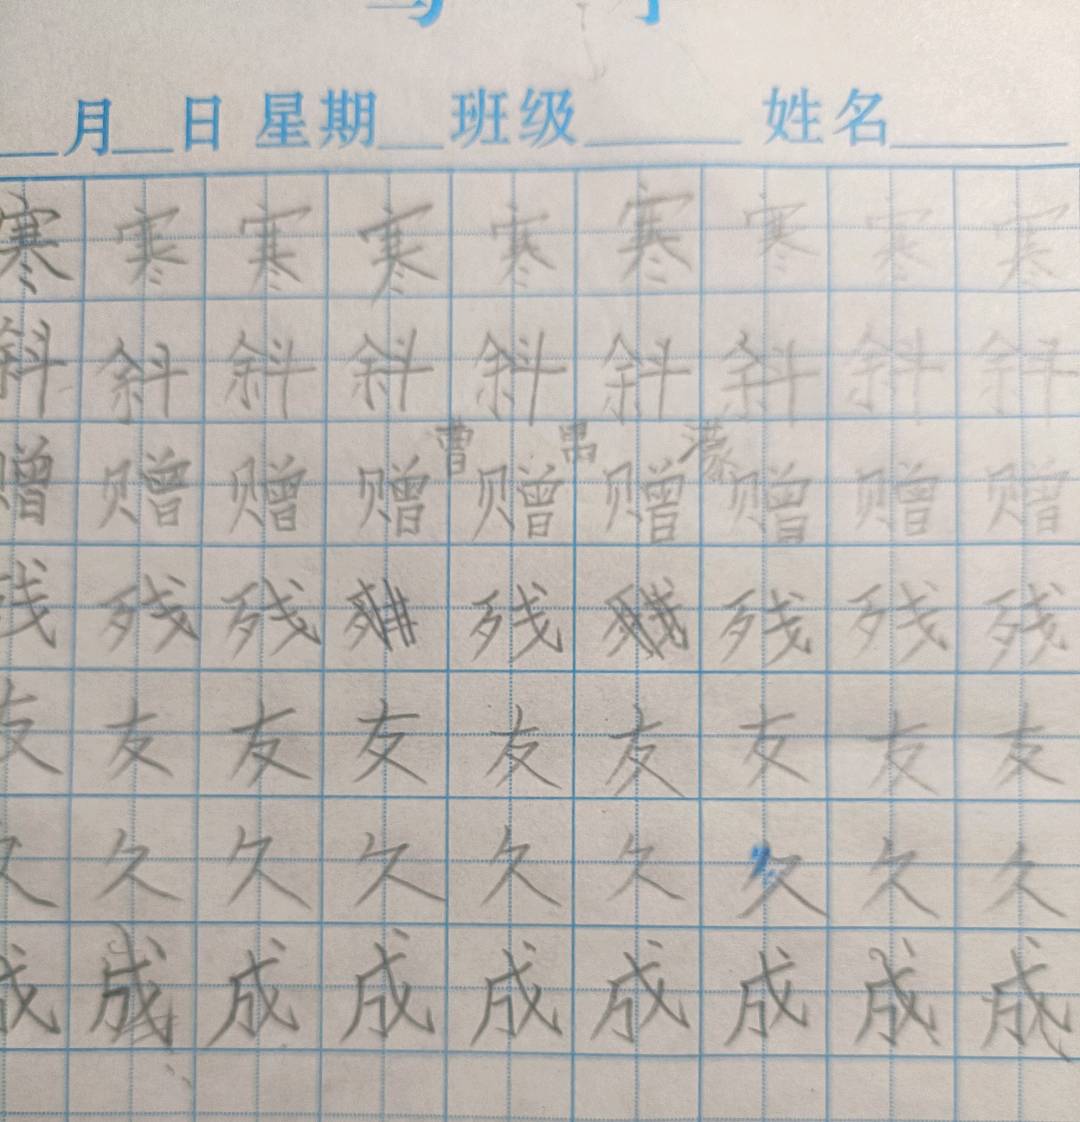 月 日 星期 班级 姓名
寒 寒 寒 寒 寒 寒 寒 寒 寒
斜 斜 斜 斜 斜 斜 斜 斜 斜
曹
赠 赠 赠 赠 赠 赠 赠 赠 赠
残 残 残 残 残 残 残
友 友 友 友 友 友 友 友 友
久 久 久 久 久 久 久 久 久
成 成 成 成 成 成 成 成 成